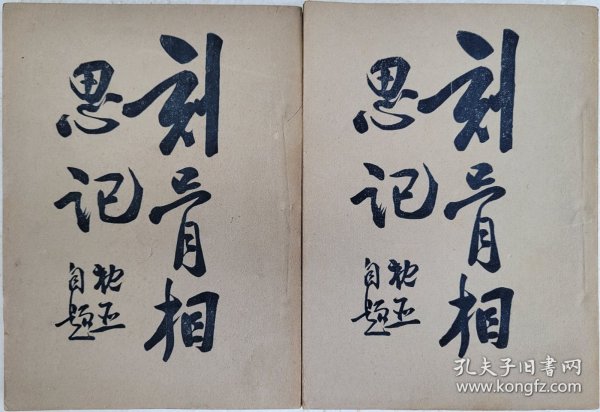 刻骨相
思记
枕亚
自题
刻骨相
思记
枕亚
自题
孔夫子旧书网
www.kongfz.com